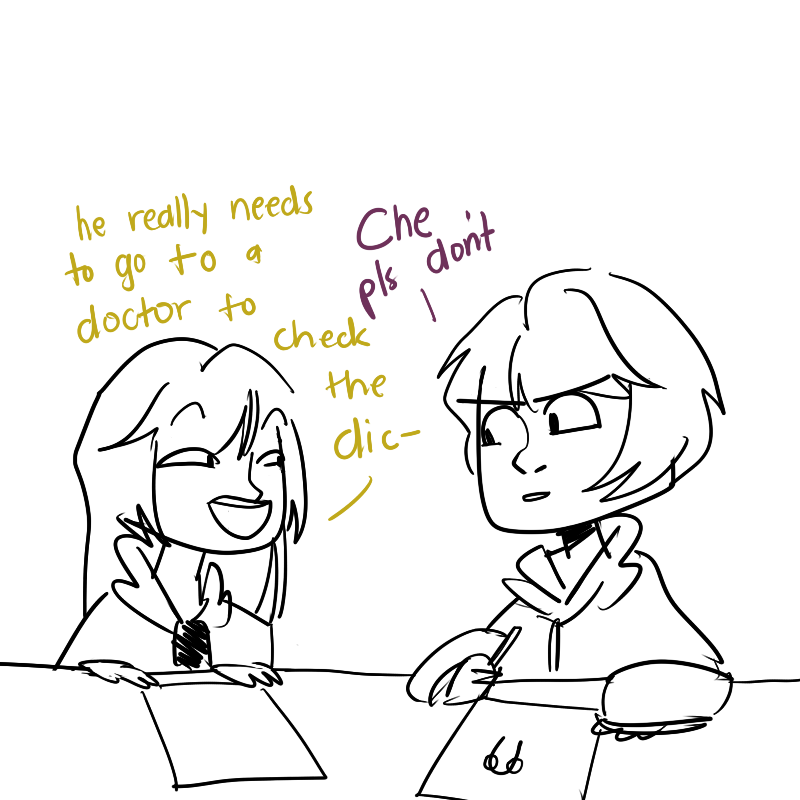 he really needs
to go to a
doctor to
check
the
dic-
Che
pls don't